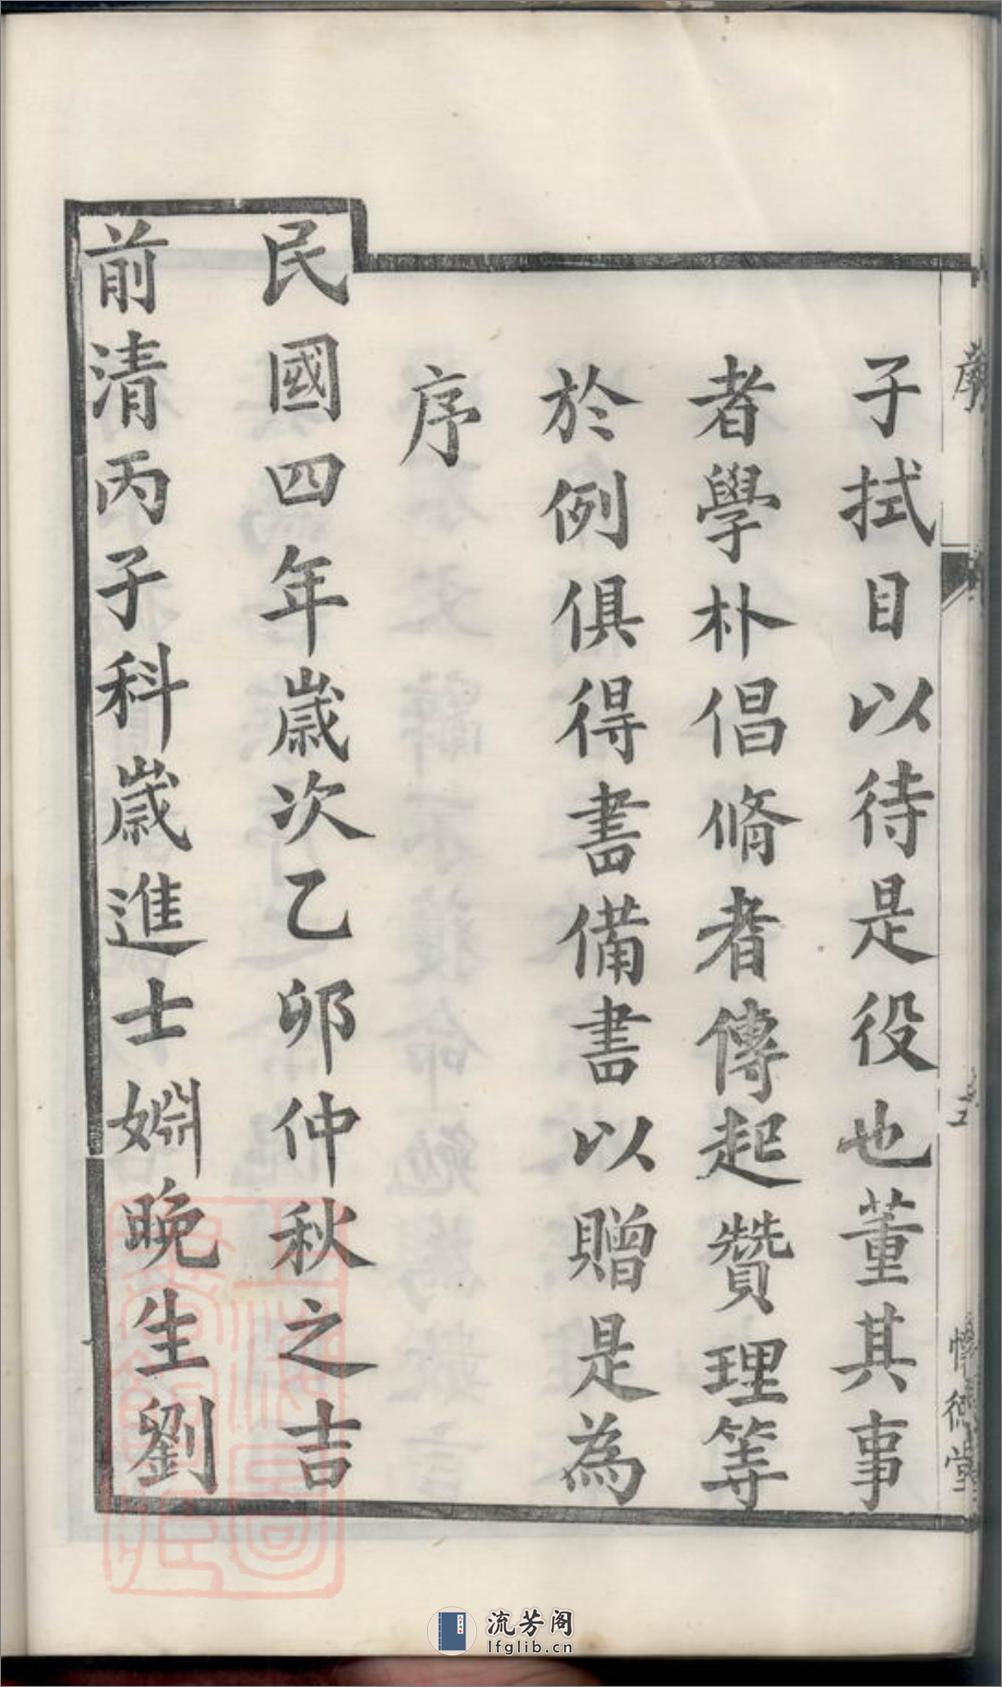 子拭目以待是役也董其事
者學朴倡脩者傳起贊理等
於例俱得書備書以贈是為
序
民國四年歲次乙卯仲秋之吉
前清丙子科歲進士姻晚生劉
流芳阁
lfglib.cn